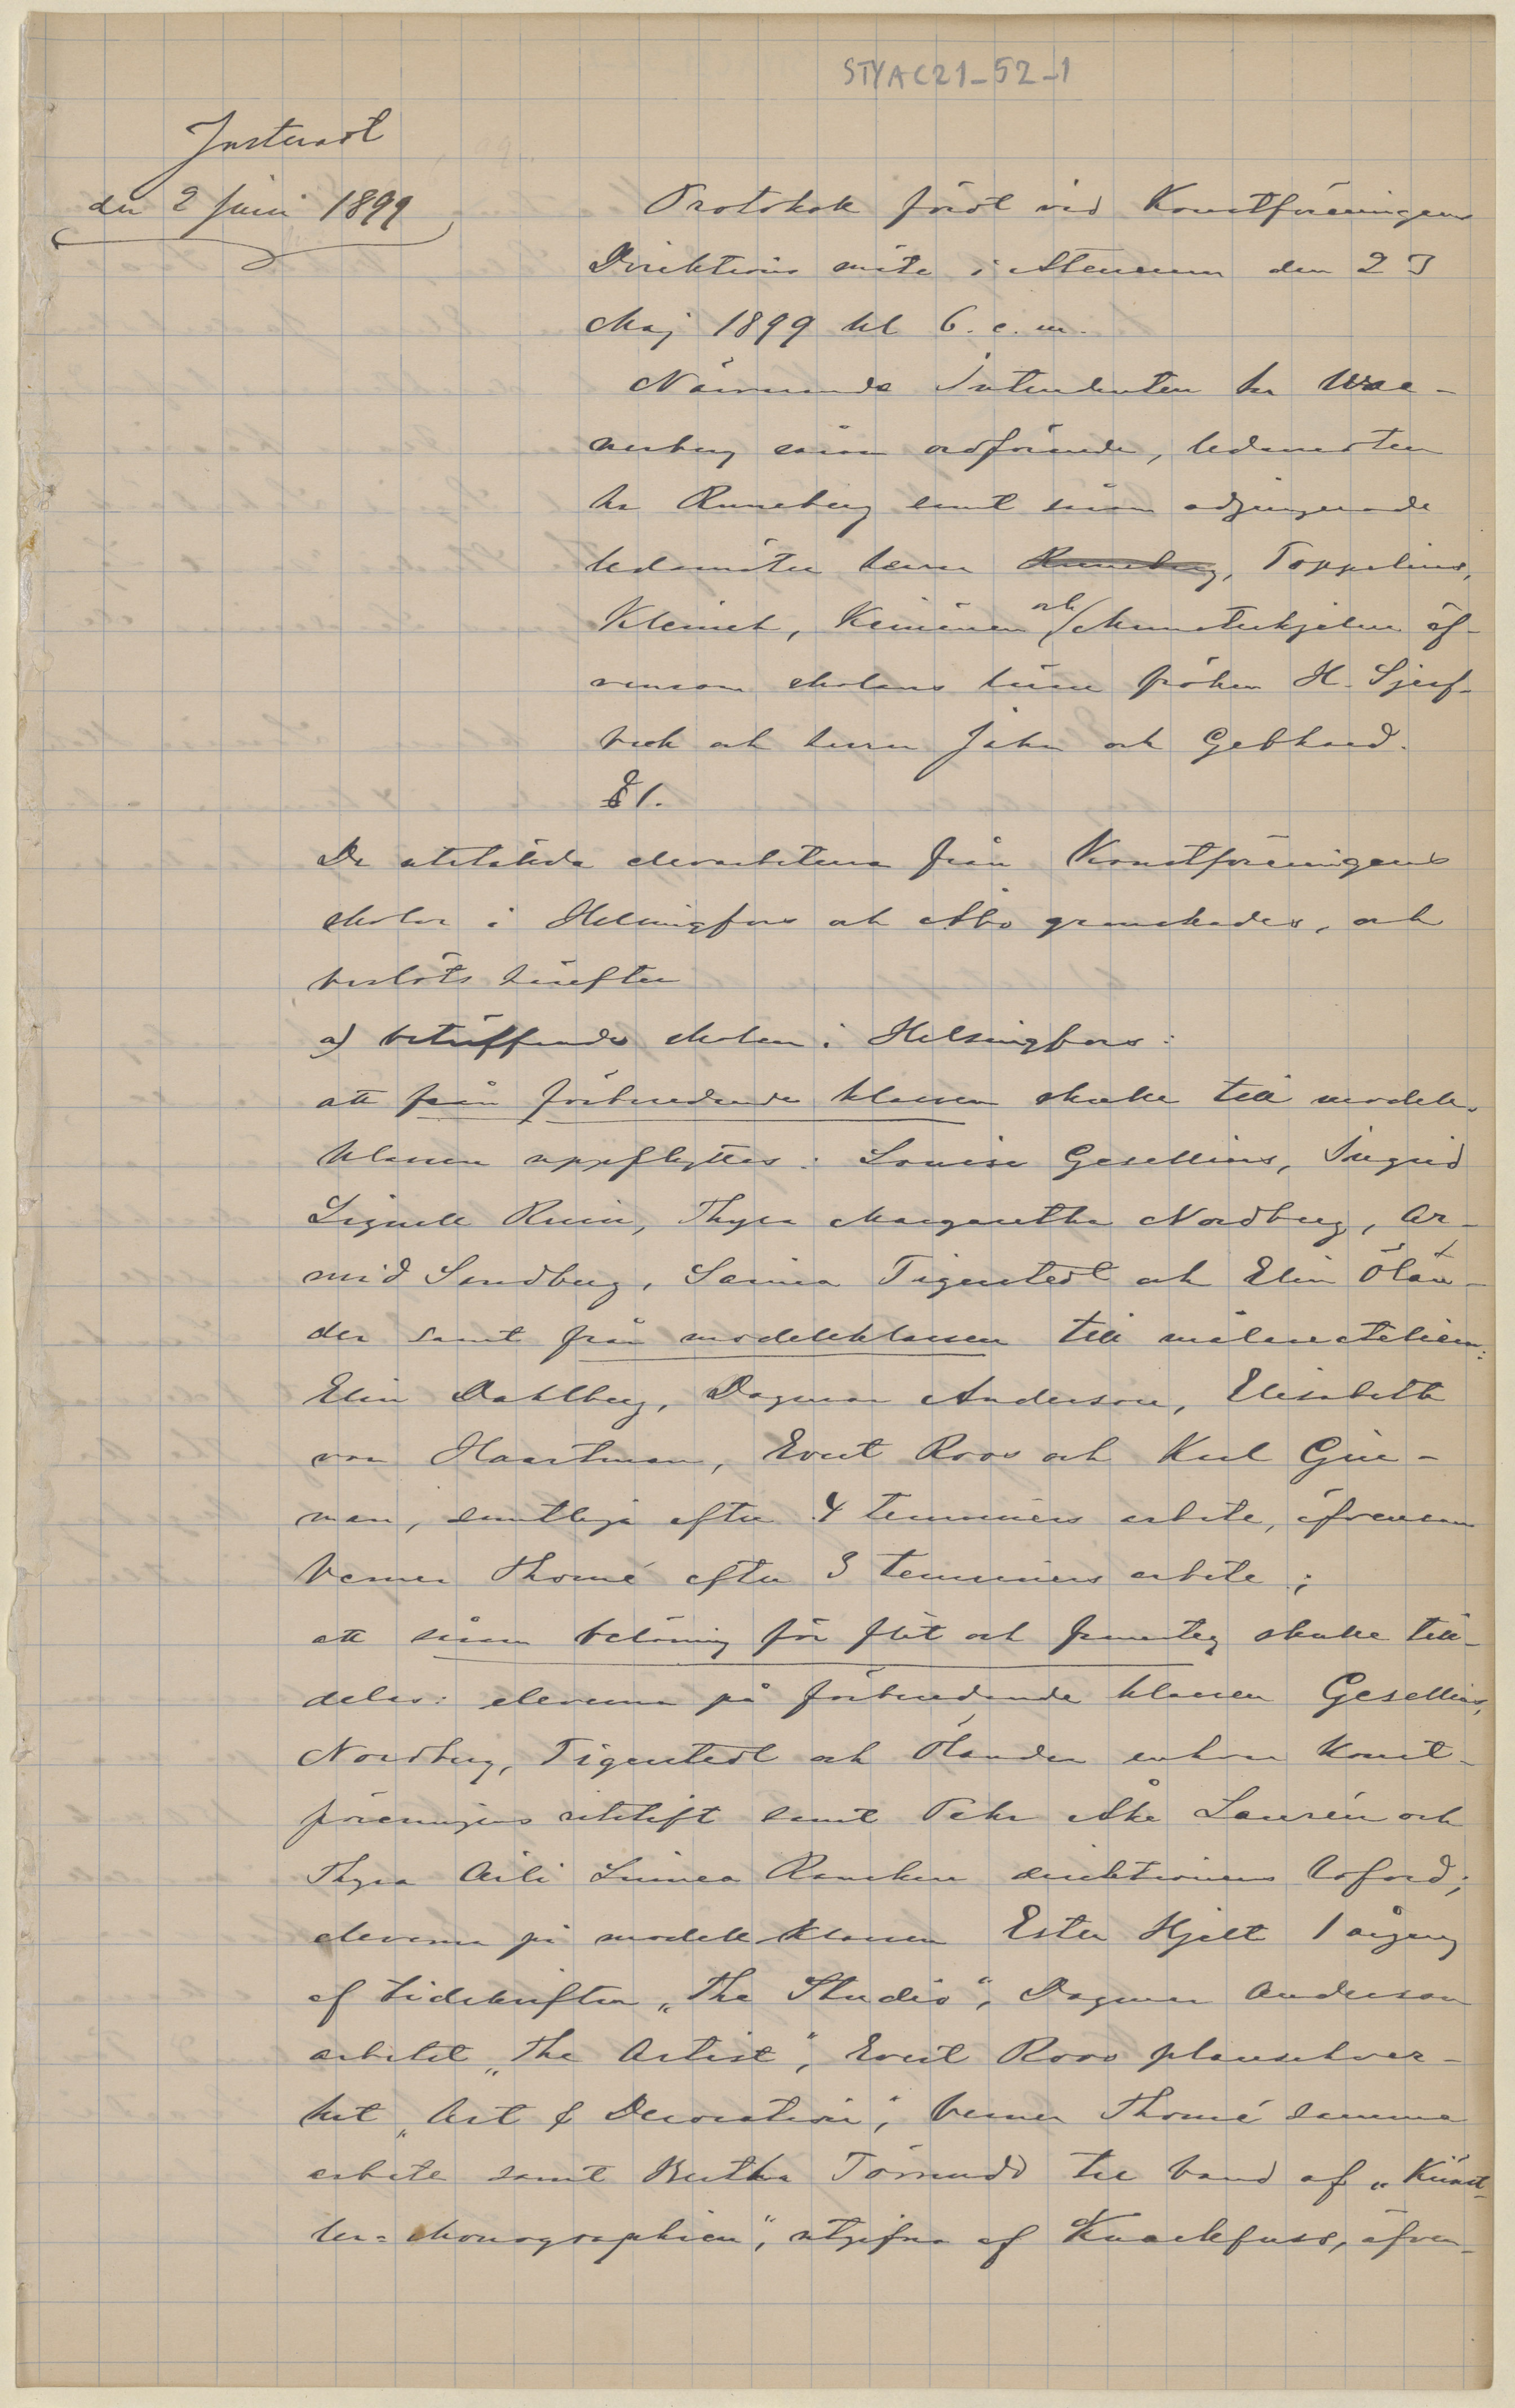 STYAC21-52-1
Justeradt
den 2 Juni 1899
Protokoll fördt vid Konstföreningens
Direktions möte i Ateneum den 23
Maj 1899 kl 6. e. m.
Närvarande Intendenten hr Wae-
nerberg såsom ordförande, ledamoten
hr Runeberg samt såsom adjungerade
ledamöter herrar Runeberg, Toppelius,
Kleineh, Keinänen och Munsterhjelm äf-
vensom skolans lärare fröken H. Sjerf-
beck och herrar Jahn och Gebhard.
§ 1.
De utstälda elevarbetena från Konstföreningens
skolor i Helsingfors och Åbo granskades, och
beslöts härefter
a) beträffande skolan i Helsingfors:
att från förberedande klassen skulle till modell-
klassen uppflyttas: Louise Gesellius, Ingrid
Signell Ruin, Thyra Margaretha Nordberg, Ar-
mid Sandberg, Saima Tigerstedt och Elin Ölan-
der samt från modellklassen till målareateliern:
Elin Dahlberg, Dagmar Anderson, Elisabeth
von Haartman, Evert Roos och Karl Gür-
man, samtliga efter 4 terminers arbete, äfvensom
Verner Thomé efter 3 terminers arbete;
att såsom belöning för flit och framsteg skulle till-
delas: eleverna på förberedande klassen Gesellius,
Nordberg, Tigerstedt och Ölander enhvar Konst-
föreningens ritstift samt Pehr Åke Laurén och
Thyra Aili Linnea Rancken direktionens loford;
eleverna på modellklassen Ester Hjelt 1 årgång
af tidskriften „The Studio", Dagmar Anderson
arbetet „The Artist", Evert Roos planschver-
ket „Art & Decoration", Verner Thomé samma
arbete samt Bertha Törnudd tre band af „Künst-
ler=Monographien", utgifna af Knackfuss, äfven-